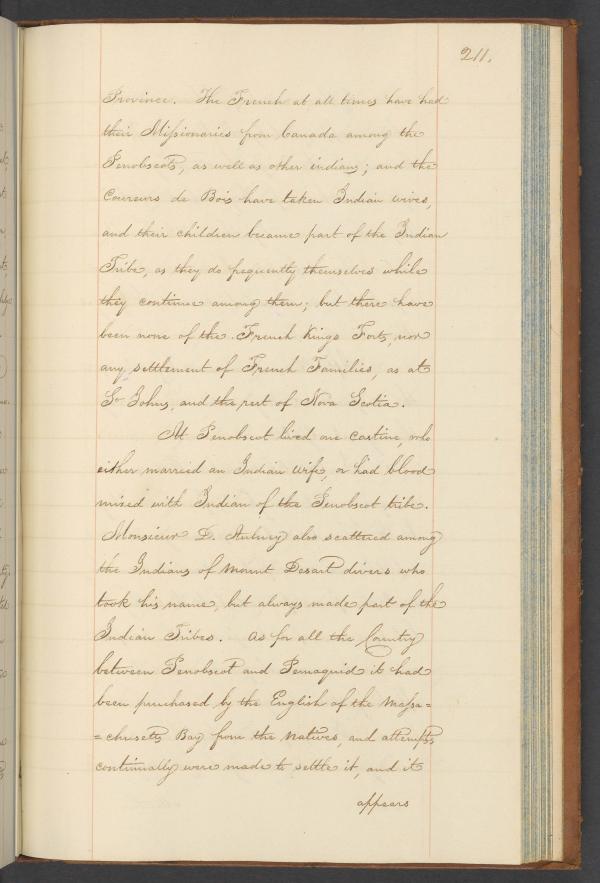 211.
Province. The French at all times have had
their Missionaries from Canada among the
Penobscots, as well as other indians; and the
Coureurs de Bois have taken Indian wives,
and their children became part of the Indian
Tribe, as they do frequently themselves while
they continue among them; but there have
been none of the French Kings Forts, nor
any settlement of French Families, as at
St Johns, and the rest of Nova Scotia.
At Penobscot lived one Castine, who
either married an Indian wife, or had blood
mixed with Indian of the Penobscot tribe.
Monsieur D. Aubury also scattered among
the Indians of Mount Desart divers who
took his name, but always made part of the
Indian Tribes. As for all the Country
between Penobscot and Pemaquid it had
been purchased by the English of the Massa=
=chusetts Bay from the natives, and attempts
continually were made to settle it, and it
appears